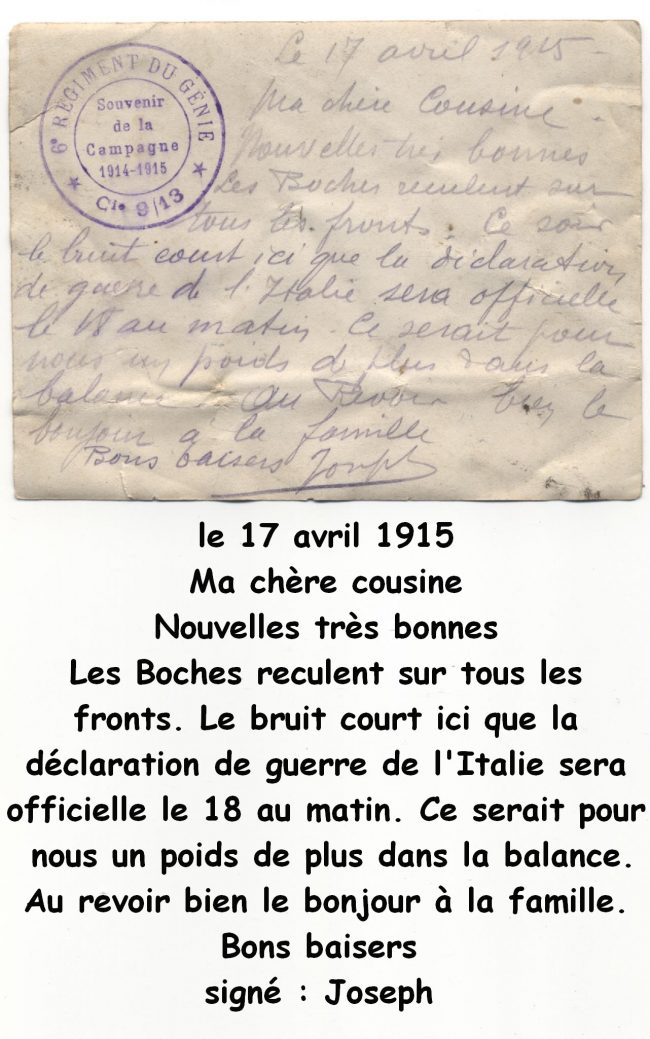 6e RÉGIMENT DU GÉNIE
Souvenir
de la
Campagne
1914-1915
Cie 9/13
Le 17 avril 1915
Ma chère Cousine
Nouvelles très bonnes
Les Boches reculent sur
tous les fronts. Ce soir
le bruit court ici que la déclaration
de guerre de l'Italie sera officielle
le 18 au matin. Ce serait pour
nous un poids de plus dans la
balance. Au Revoir bien le
bonjour à la famille
Bons baisers Joseph
le 17 avril 1915
Ma chère cousine
Nouvelles très bonnes
Les Boches reculent sur tous les
fronts. Le bruit court ici que la
déclaration de guerre de l'Italie sera
officielle le 18 au matin. Ce serait pour
nous un poids de plus dans la balance.
Au revoir bien le bonjour à la famille.
Bons baisers
signé : Joseph